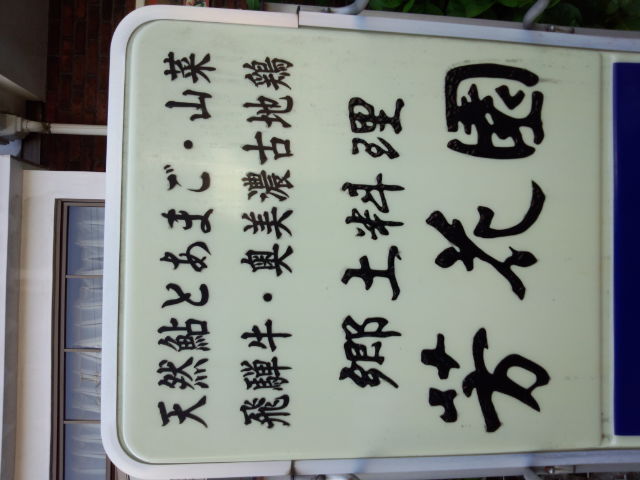 天然鮎とあまご・山菜
飛騨牛・奥美濃古地鶏
郷土料理
芳花園